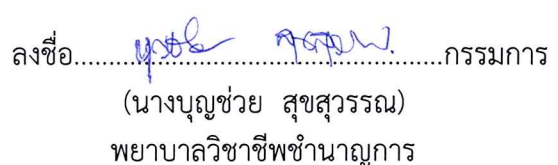 ลงชื่อ.....................................................กรรมการ
(นางบุญช่วย สุขสุวรรณ)
พยาบาลวิชาชีพชำนาญการ